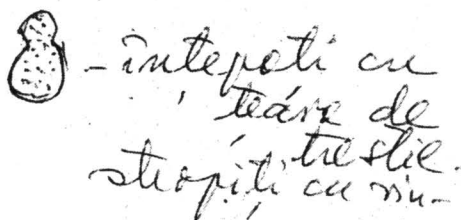 - înțepați cu
țeavă de
trestie.
stropiți cu vin-